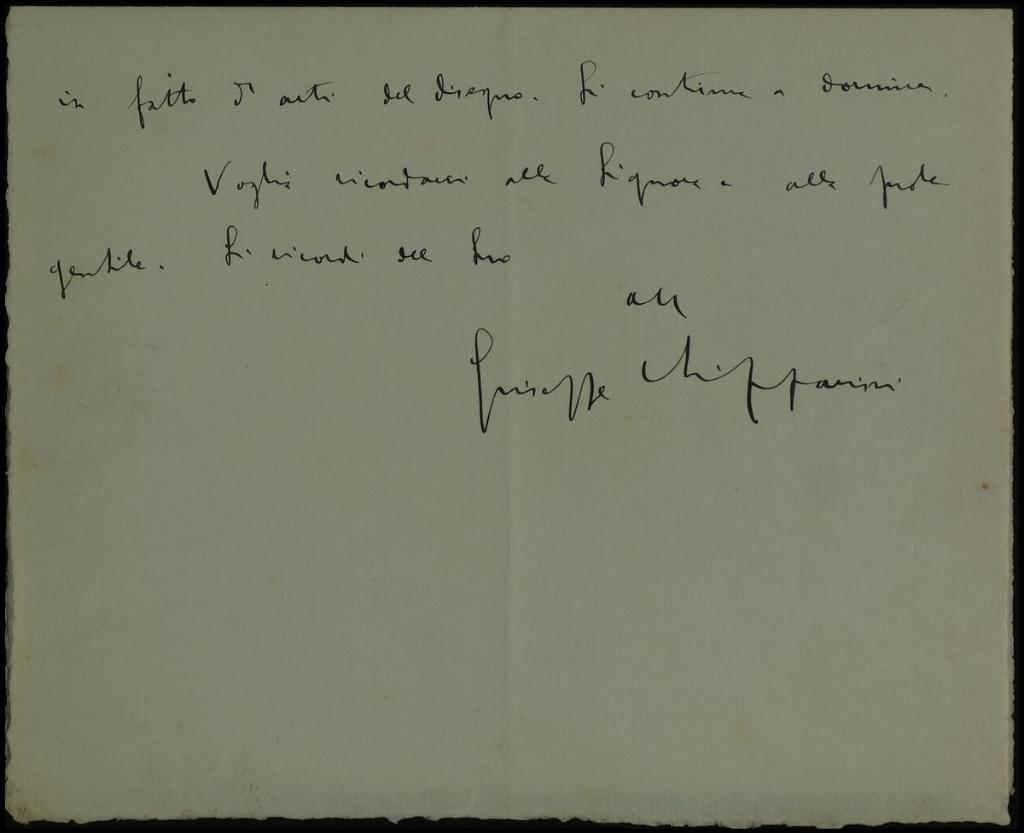 in fatto d'arti del disegno. Si continua a dormire.
Voglia ricordarci alla Signora e alla prole
gentile. Si ricordi del Suo
aff
Giuseppe Lipparini